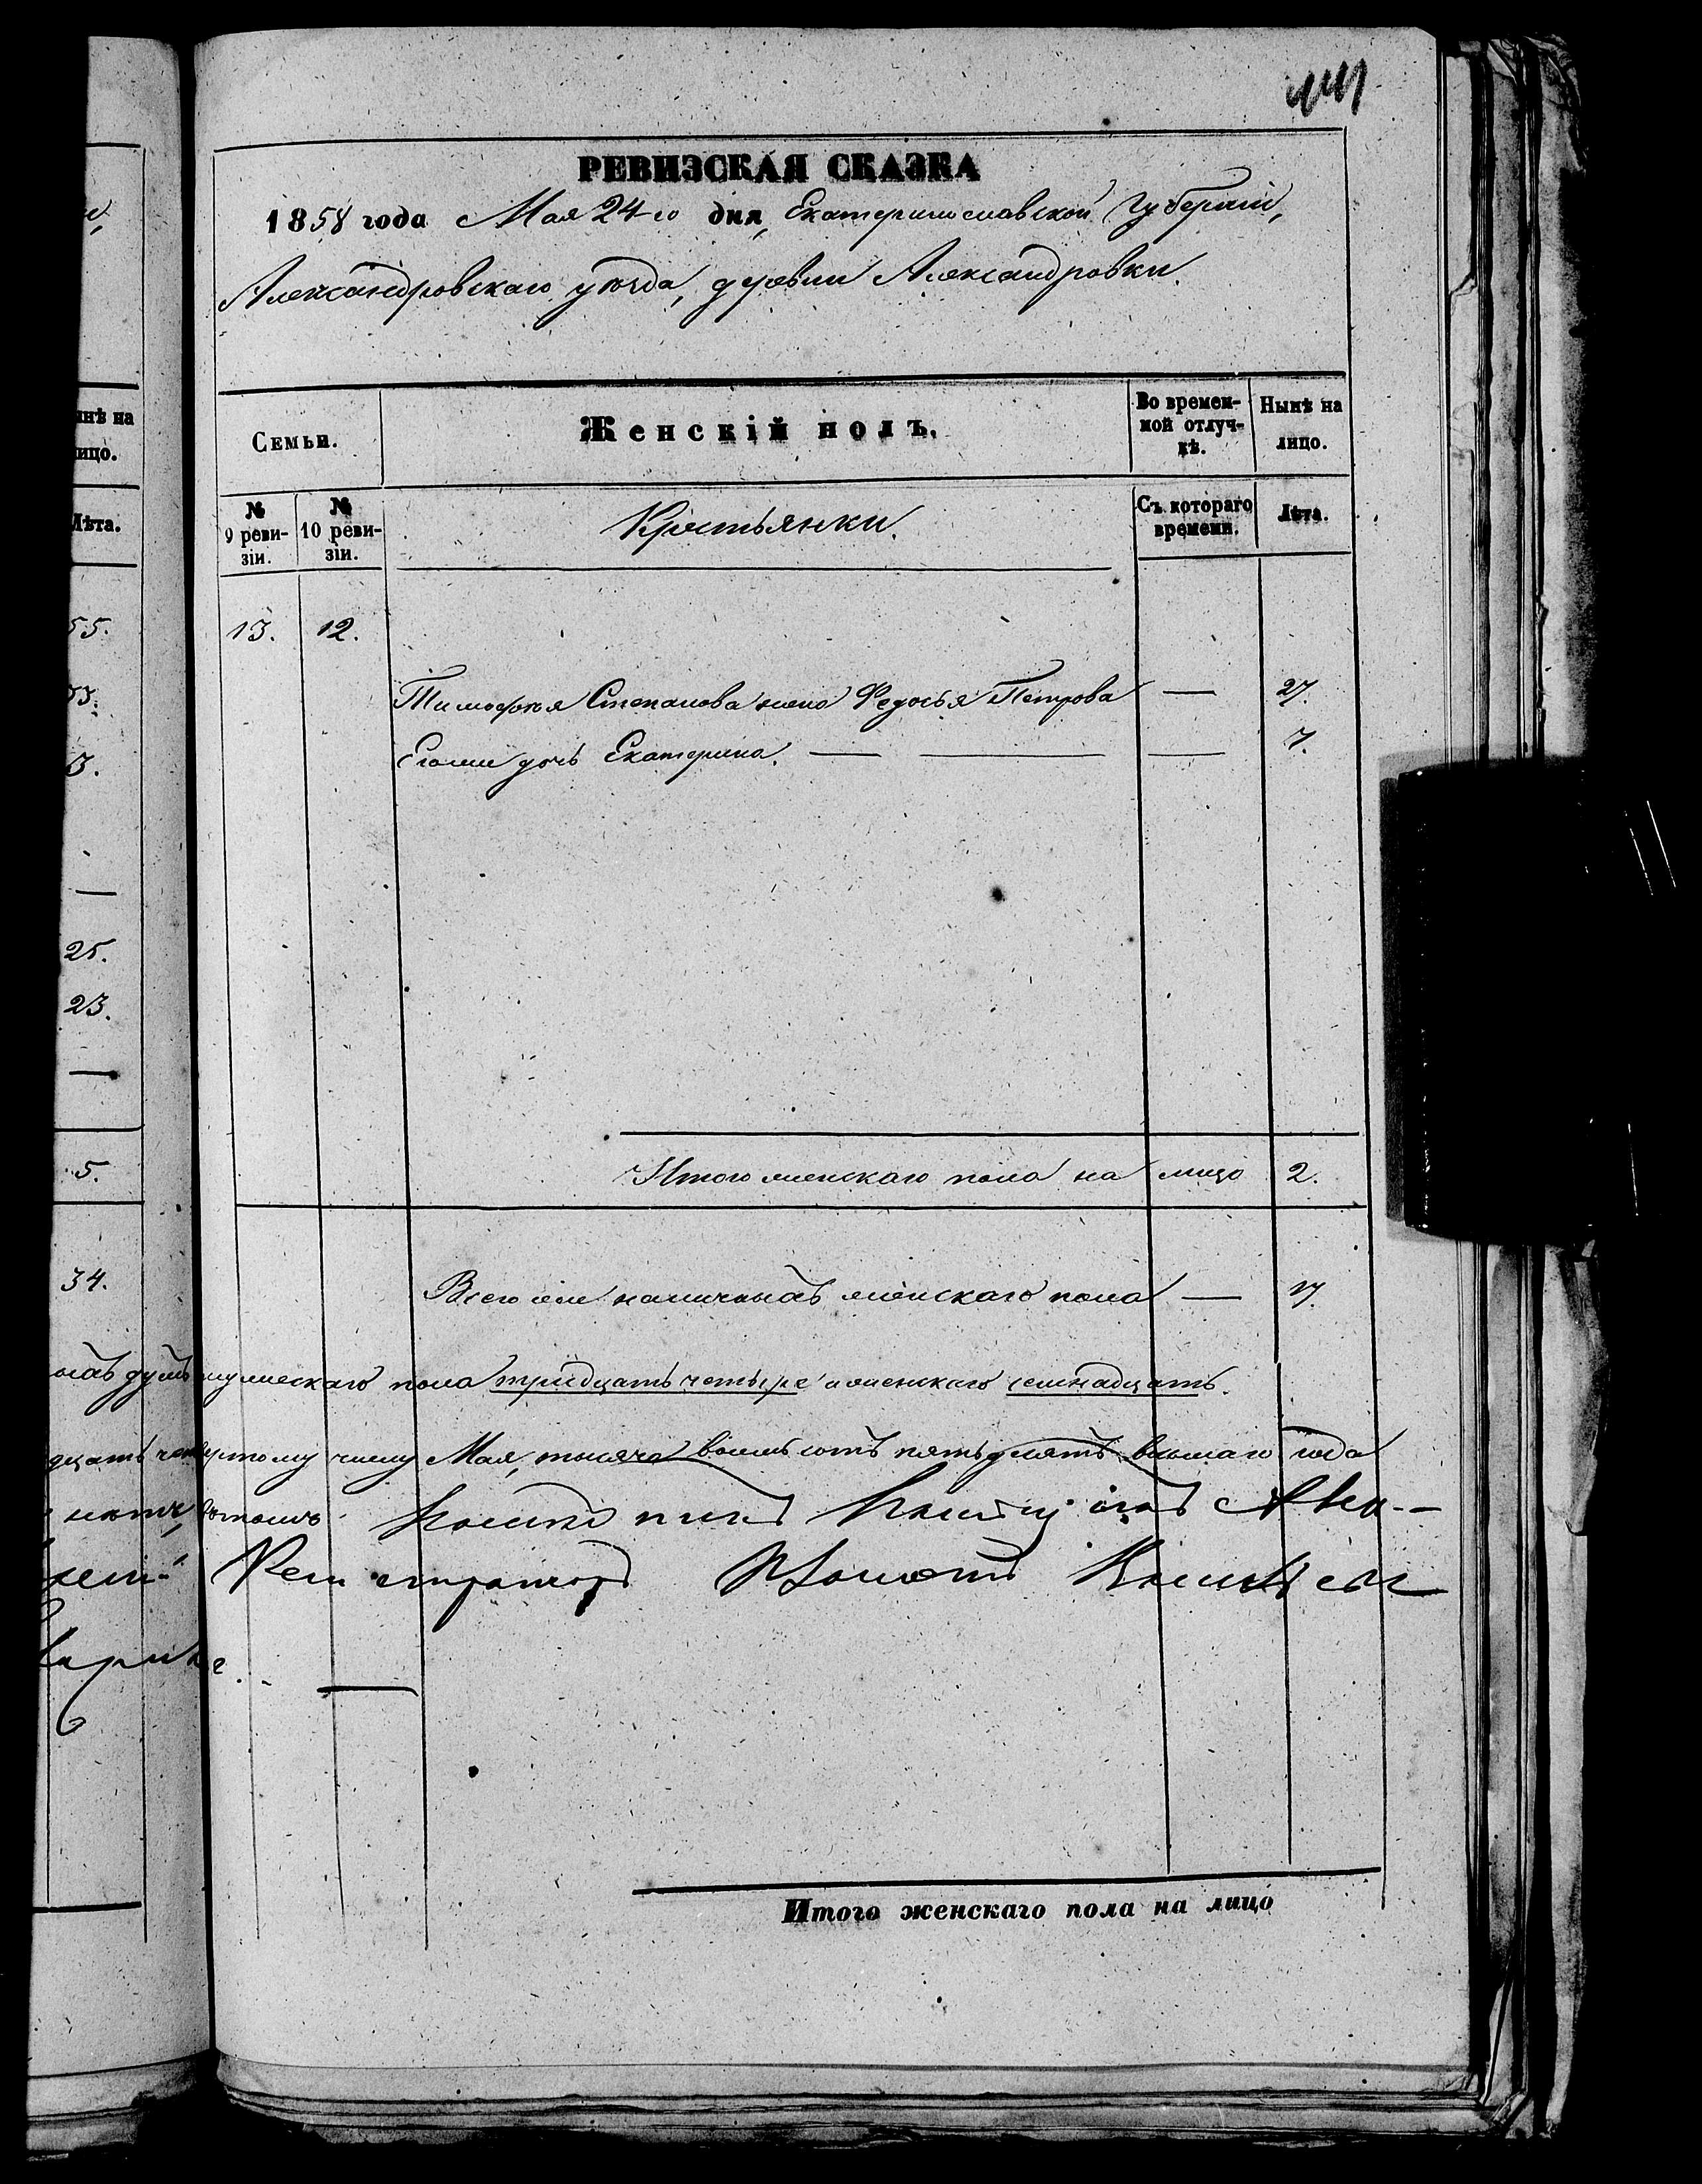 РЕВИЗСКАЯ СКАЗКА
1858 года Мая 24-го дня, Екатеринославской Губерніи,
Александровскаго уѣзда, деревни Александровки.
Семьи.
Женскій полъ.
Во времен-
ной отлуч-
кѣ.
Нынѣ на
лицо.
№
9 реви-
зіи.
№
10 реви-
зіи.
Крестьянки.
Съ котораго
времени.
Лѣта.
13. 12.
Тимофѣя Степанова жена Федосья Петрова — 27.
Его же дочь Екатерина. — — — 7.
Итого женскаго пола на лицо 2.
Всего же наличныхъ женскаго пола — 17.
ныхъ душъ мужескаго пола тридцать четыре и женскаго семнадцать.
дцать четвертому числу Мая, тысяча восемь сотъ пятьдесятъ восьмаго года
Итого женскаго пола на лицо
нѣ на
ицо.
Лѣта.
55.
3.
25.
23.
5.
34.